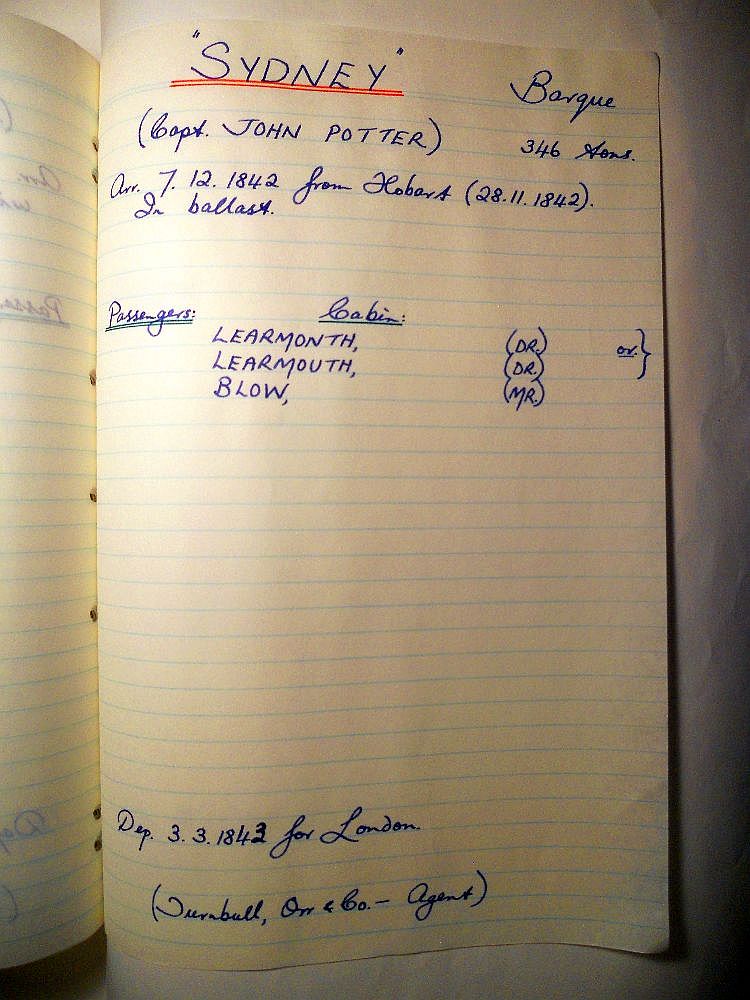 "SYDNEY"
Barque
(Capt. JOHN POTTER)
346 tons.
Arr. 7.12.1842 from Hobart (28.11.1842).
In ballast.
Passengers: Cabin:
LEARMONTH, (DR.) or }
LEARMOUTH, (DR.)
BLOW, (MR.)
Dep. 3.3.1843 for London.
(Turnbull, Orr & Co. - Agent)